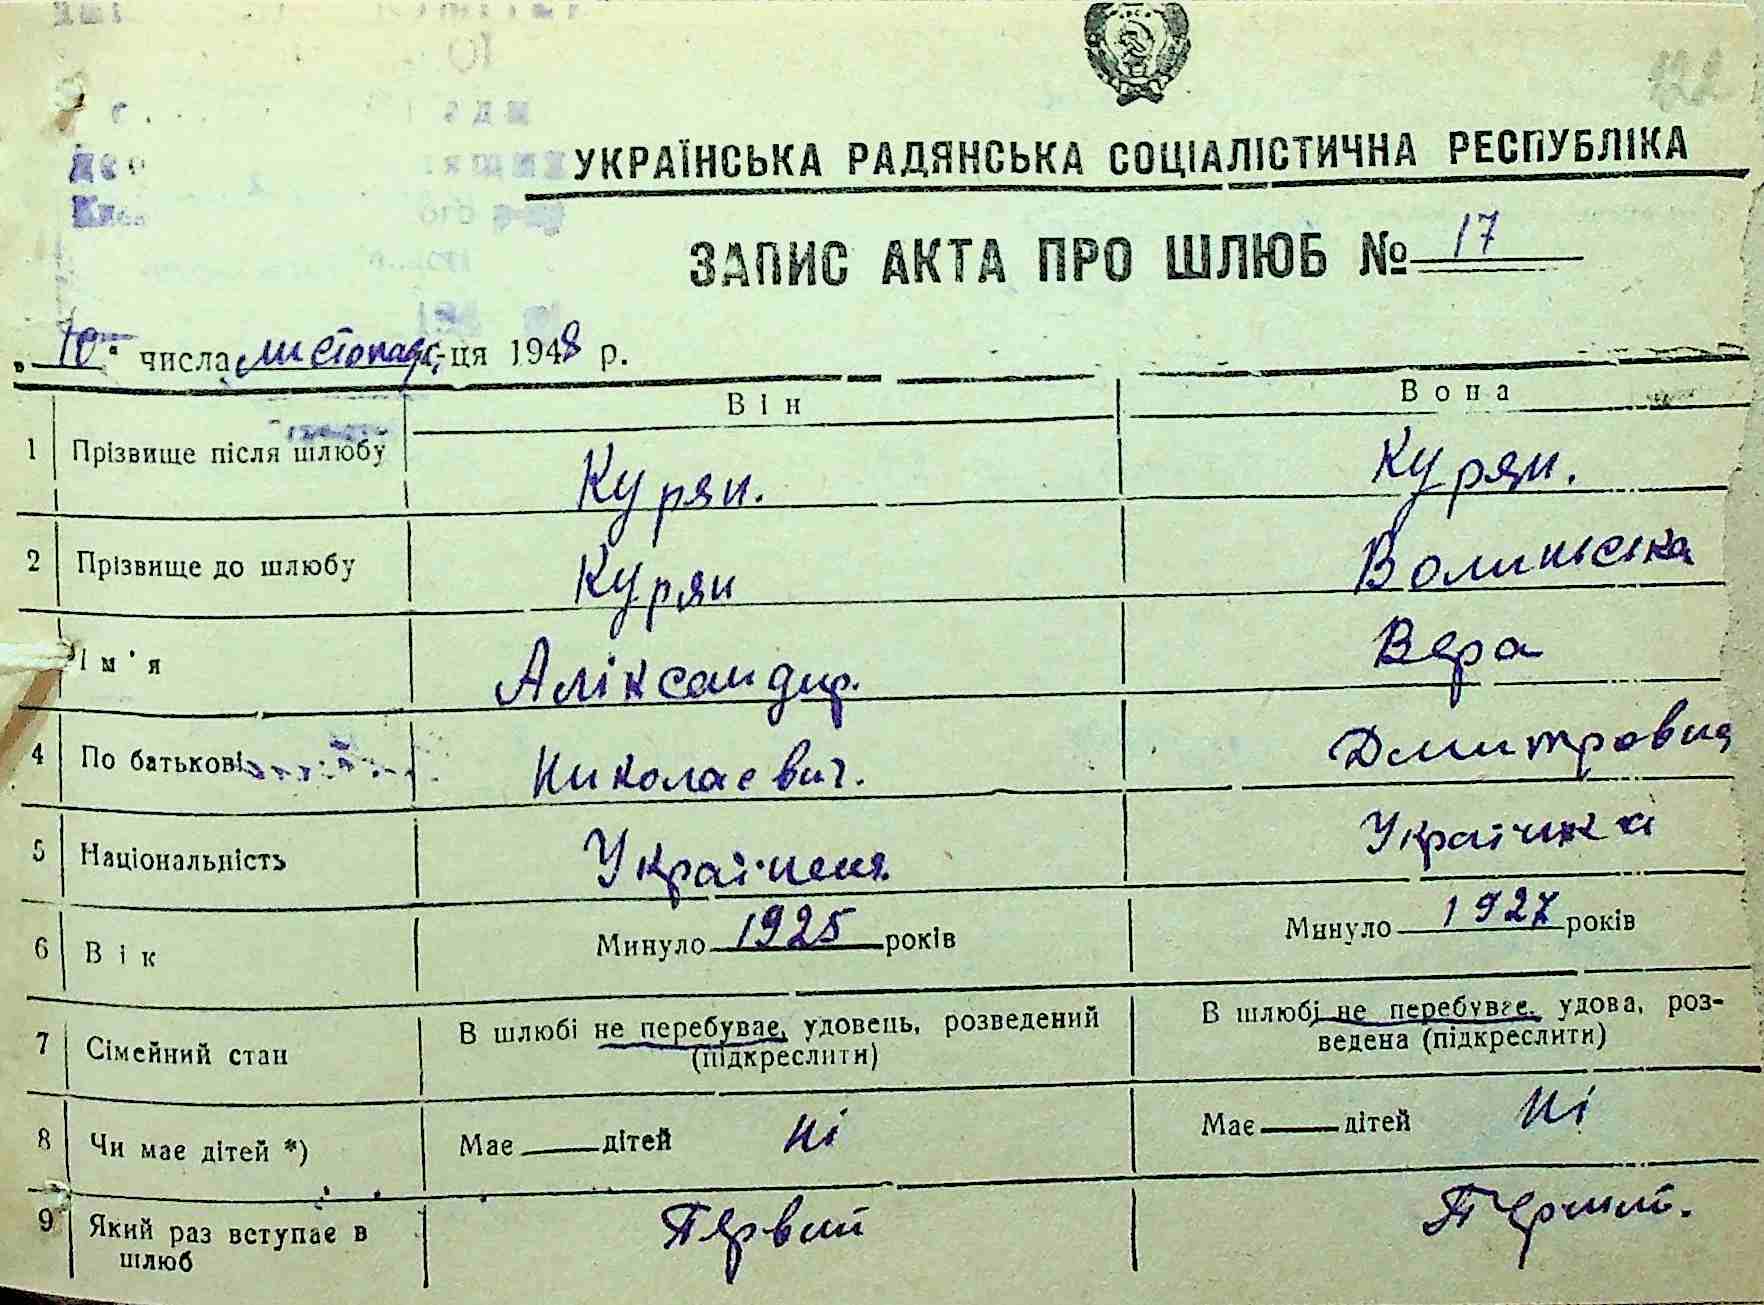 УКРАЇНСЬКА РАДЯНСЬКА СОЦІАЛІСТИЧНА РЕСПУБЛІКА
ЗАПИС АКТА ПРО ШЛЮБ № 17
„10" числа листопада м-ця 1948 р.
Він Вона
1 Прізвище після шлюбу Курян. Курян.
2 Прізвище до шлюбу Курян Волинська
Ім'я Аліксандир. Вера
4 По батькові Николаевич. Дмитровна
5 Національність Українец Українка
6 Вік Минуло 1925 років Минуло 1927 років
7 Сімейний стан В шлюбі не перебуває, удовець, розведений (підкреслити) В шлюбі не перебуває, удова, роз-
ведена (підкреслити)
8 Чи має дітей *) Має дітей Ні Має дітей Ні
9 Який раз вступає в шлюб Первий Перший.